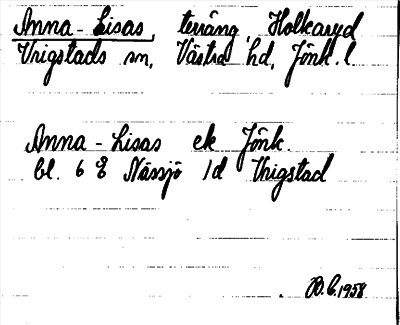 Anna-Lisas, terräng, Holkaryd
Vrigstads sn, Västra hd, Jönk. l.
Anna-Lisas ek Jönk.
bl. 6 E Nässjö 1d Vrigstad
1958